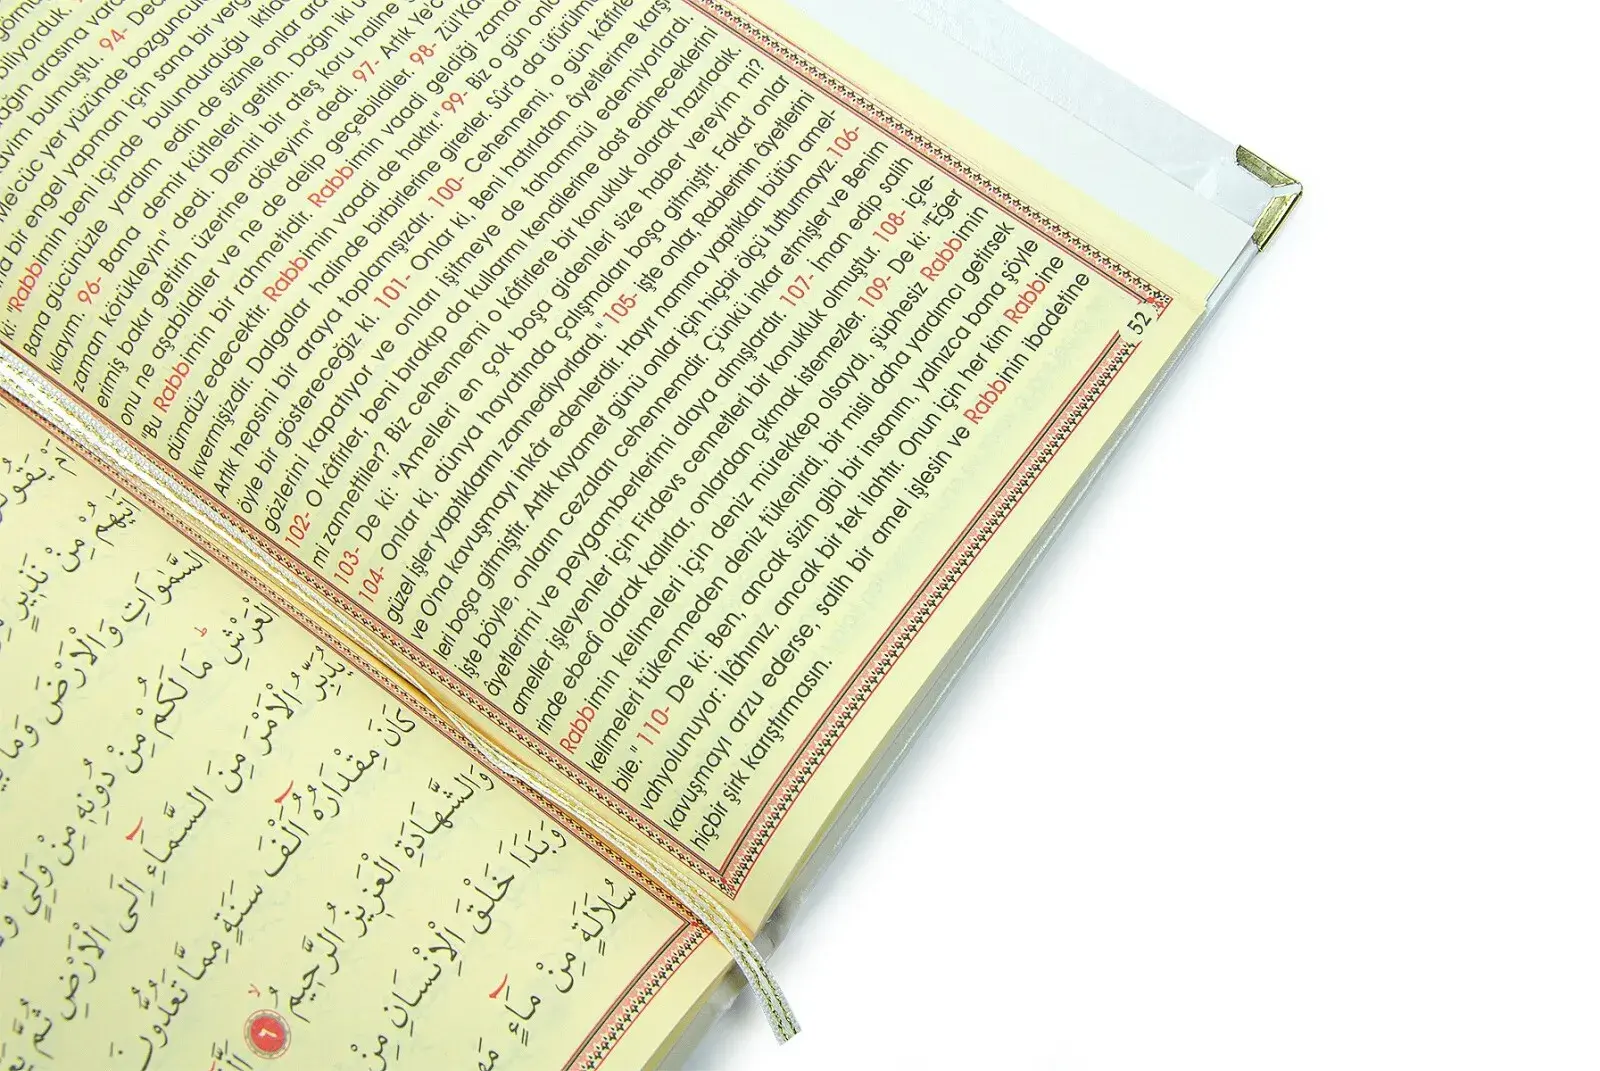 biliyorduk.
bulmuştu. 94-
bir engel yapman için sana bir
ki: "Rabbimin beni içinde bulundurduğu
Bana gücünüzle yardım edin de sizinle onlar
96- Bana demir kütleleri getirin. Dağın iki
zaman "Körükleyin" dedi. Demiri bir ateş koru haline
erimiş bakır getirin üzerine dökeyim" dedi. 97- Artık
onu ne aşabildiler ve ne de delip geçebildiler. 98-
"Bu Rabbimin bir rahmetidir. Rabbimin vaadi geldiği
dümdüz edecektir. Rabbimin vaadi de haktır." 99- Biz o gün
kıvermişizdir. Dalgalar halinde birbirlerine girerler. Sûra da
Artık hepsini bir araya toplamışızdır. 100- Cehennemi, o gün
öyle bir göstereceğiz ki. 101- Onlar ki, Beni hatırlatan âyetlerime karşı
gözlerini kapatıyor ve onları işitmeye de tahammül edemiyorlardı.
102- O kâfirler, beni bırakıp da kullarımı kendilerine dost edineceklerini
mi zannettiler? Biz cehennemi o kâfirlere bir konukluk olarak hazırladık.
103- De ki: "Amelleri en çok boşa gidenleri size haber vereyim mi?
104- Onlar ki, dünya hayatında çalışmaları boşa gitmiştir. Fakat onlar
güzel işler yaptıklarını zannediyorlardı." 105- İşte onlar, Rablerinin âyetlerini
ve O'na kavuşmayı inkâr edenlerdir. Hayır namına yaptıkları bütün amel-
leri boşa gitmiştir. Artık kıyamet günü onlar için hiçbir ölçü tutturmayız. 106-
İşte böyle, onların cezaları cehennemdir. Çünkü inkar etmişler ve Benim
âyetlerimi ve peygamberlerimi alaya almışlardır. 107- İman edip salih
ameller işleyenler için Firdevs cennetleri bir konukluk olmuştur. 108- İçle-
rinde ebedî olarak kalırlar, onlardan çıkmak istemezler. 109- De ki: "Eğer
Rabbimin kelimeleri için deniz mürekkep olsaydı, şüphesiz Rabbimin
kelimeleri tükenmeden deniz tükenirdi, bir misli daha yardımcı getirsek
bile." 110- De ki: Ben, ancak sizin gibi bir insanım, yalnızca bana şöyle
vahyolunuyor: İlâhınız, ancak bir tek ilahtır. Onun için her kim Rabbine
kavuşmayı arzu ederse, salih bir amel işlesin ve Rabbinin ibadetine
hiçbir şirk karıştırmasın.
52
اَمْ يَقُولُونَ
السَّمٰوَاتِ وَالْاَرْضَ وَمَا
الْعَرْشِ مَالَكُمْ مِنْ دُونِهِ مِنْ وَلِيٍّ
يُدَبِّرُ الْاَمْرَ مِنَ السَّمَاءِ اِلَى الْاَرْضِ ثُمَّ
كَانَ مِقْدَارُهُ اَلْفَ سَنَةٍ مِمَّا تَعُدُّونَ
وَالشَّهَادَةِ الْعَزِيزُ الرَّحِيمُ ٦
وَبَدَاَ خَلْقَ الْاِنْسَانِ مِنْ
سُلَالَةٍ مِنْ مَاءٍ